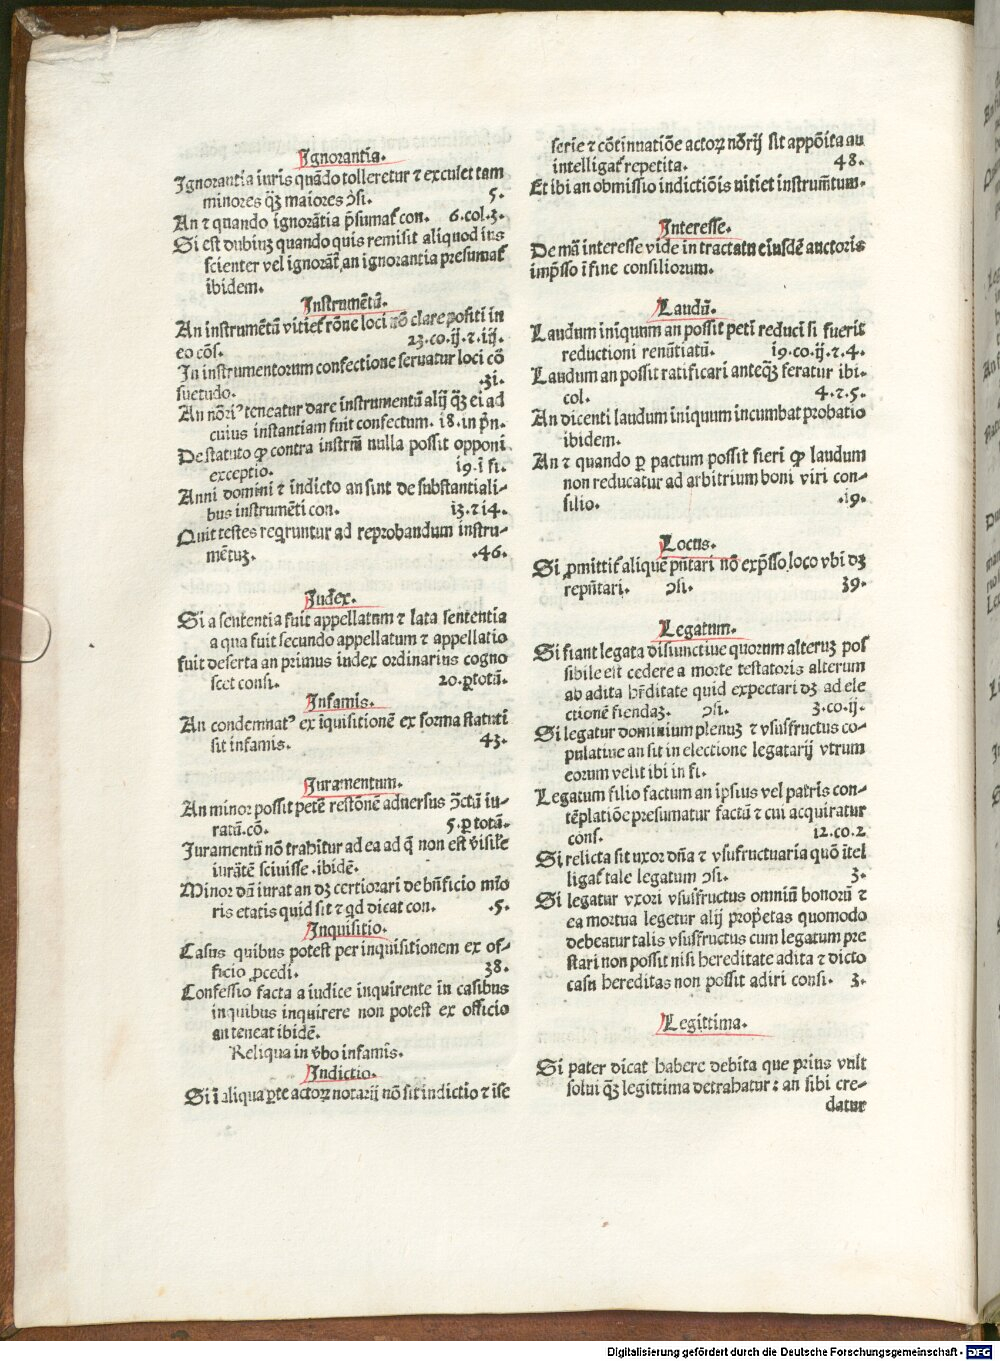 Ignorantia.
Ignorantia iuris quãdo tolleretur ⁊ excuset tam
minores qꝫ̃ maiores ↄ̃si. 5.
An ⁊ quando ignorãtia p̃sumat̃ con. 6.col.3.
Si est dubiuꝫ quando quis remisit aliquod ius
scienter vel ignorãt̃ an ignorantia presumat̃
ibidem.
Instrumẽtũ.
An instrumẽtũ vitiet̃ rõne loci nõ clare positi in
eo cõs. 23.co.ij.⁊.iij.
In instrumentorum confectione seruatur loci cõ
suetudo. .3i.
An nõriꝰ teneatur dare instrumentũ alij qꝫ̃ ei ad
cuius instantiam fuit confectum. i8.in p̃n.
De statuto ꝙ contra instrm̃ nulla possit opponi
exceptio. i9.ĩ fi.
Anni domini ⁊ indicto an sint de substantiali-
bus instrumẽti con. i3.⁊ i4.
Quit testes reqruntur ad reprobandum instru-
mẽtuꝫ. .46.
Iudex.
Si a sententia fuit appellatum ⁊ lata sententia
a qua fuit secundo appellatum ⁊ appellatio
fuit deserta an primus iudex ordinarius cogno
scet consi. 20.ꝑ totũ.
Infamis.
An condemnatꝰ ex ĩquisitionẽ ex forma statuti
sit infamis. 43.
Iuramentum.
An minor possit petẽ restõnẽ aduersus ↄ̃ctũ iu-
ratũ.cõ. 5.ꝑ totũ.
Iuramentũ nõ trahitur ad ea ad q̃ non est v̾isil'e
iurãtẽ sciuisse .ibidẽ.
Minor dũ iurat an dꝫ certiorari de bñficio mĩo
ris etatis quid sit ⁊ qd dicat con. .5.
Inquisitio.
Casus quibus potest per inquisitionem ex of-
ficio ꝓcedi. 38.
Confessio facta a iudice inquirente in casibus
in quibus inquirere non potest ex officio
an teneat ibidẽ.
Reliqua in v̾bo infamis.
Indictio.
Si ĩ aliqua ꝑte actoꝝ notarii nõ sit indictio ⁊ ĩ se
serie ⁊ cõtinuatiõe actoꝝ nõrij sit appõita an
intelligat̃ repetita. 48.
Et ibi an obmissio indictiõis uitiet instrum̃tum.
Interesse.
De mã interesse vide in tractatu eiusdẽ auctoris
imp̃sso ĩ fine consiliorum.
Laudũ.
Laudum iniquum an possit peti reduci si fuerit
reductioni renũtiatũ. i9.co.ij.⁊.4.
Laudum an possit ratificari anteqꝫ̃ feratur ibi.
col. 4.⁊.5.
An dicenti laudum iniquum incumbat probatio
ibidem.
An ⁊ quando ꝑ pactum possit fieri ꝙ laudum
non reducatur ad arbitrium boni viri con-
silio. .i9.
Locus.
Si ꝓmittit̃ aliquẽ pñtari nõ exp̃sso loco vbi dꝫ
repñtari. ↄ̃si. 39.
Legatum.
Si fiant legata disiunctiue quorum alteruꝫ pos
sibile est cedere a morte testatoris alterum
ab adita hr̃ditate quid expectari dꝫ ad ele
ctionẽ fiendaꝫ. ↄ̃si. 3.co.ij.
Si legatur dominium plenuꝫ ⁊ vsusfructus co-
pulatiue an sit in electione legatarij vtrum
eorum velit ibi in fi.
Legatum filio factum an ipsius vel patris con-
tẽplatiõe presumatur factũ ⁊ cui acquiratur
cons. i2.co.2
Si relicta sit uxor dña ⁊ vsufructuaria quõ ĩtel
ligat̃ tale legatum ↄ̃si. 3.
Si legatur vxori vsusfructus omniũ bonorũ ⁊
ea mortua legetur alij prop̾etas quomodo
debeatur talis vsusfructus cum legatum pre
stari non possit nisi hereditate adita ⁊ dicto
casu hereditas non possit adiri consi. 3.
Legittima.
Si pater dicat habere debita que prius vult
solui qꝫ̃ legittima detrahatur: an sibi cre-
datur
Digitalisierung gefördert durch die Deutsche Forschungsgemeinschaft - DFG